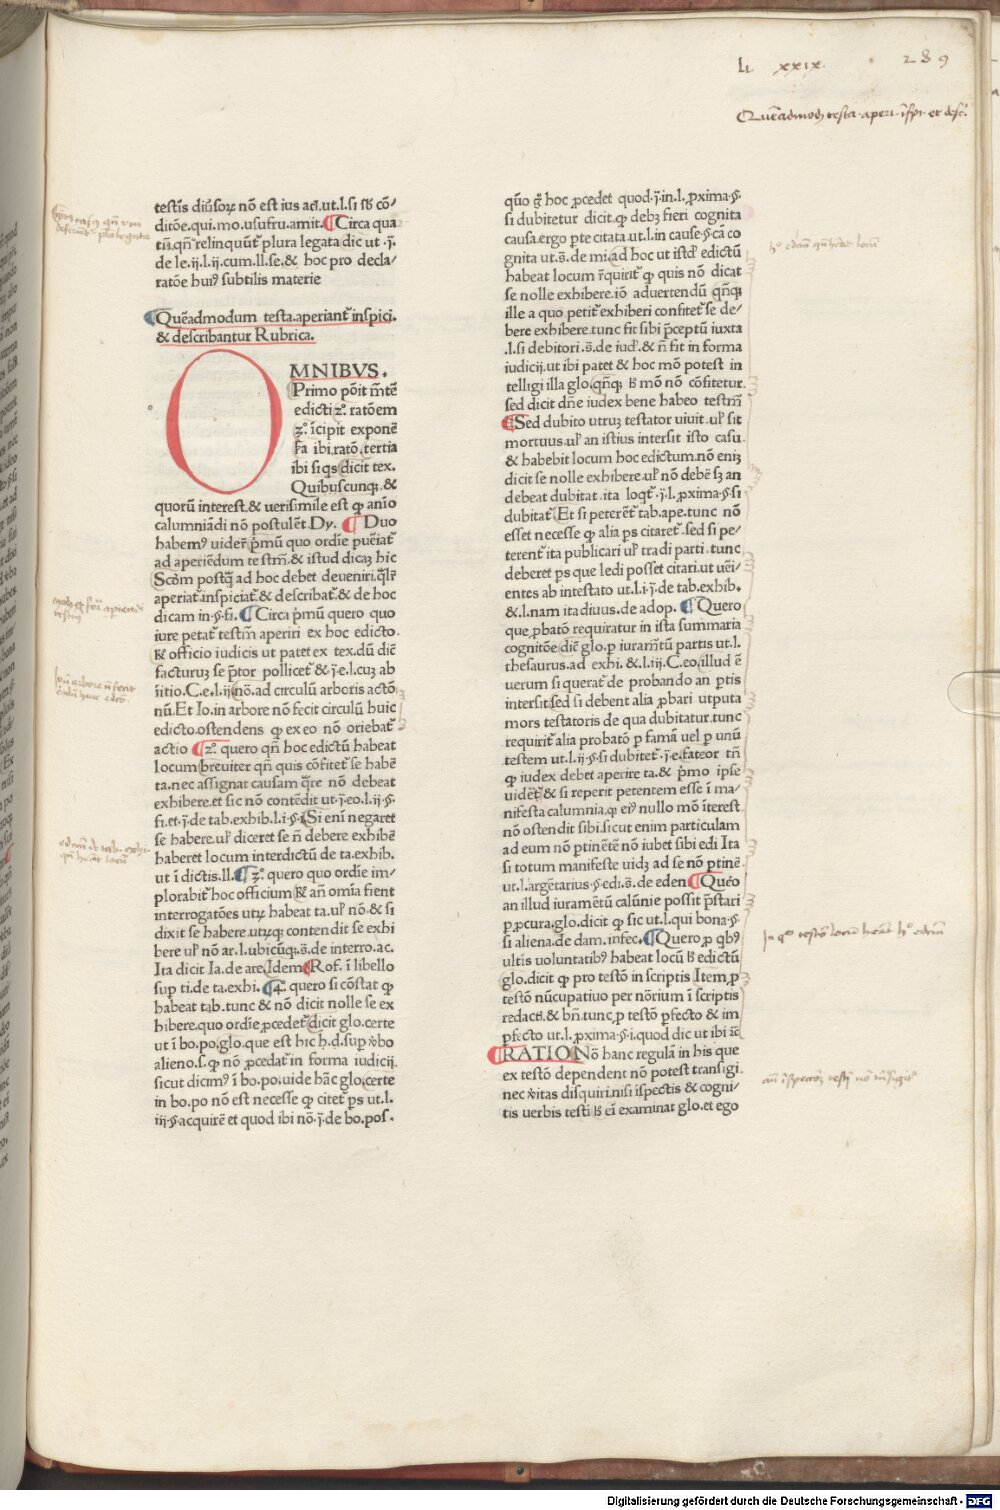 Li xxix. 289
Quēadmodū testa. aperi. īspi. et desc̄.
testis diūsoꝝ nō est ius ad.ut.l.si sb̄ cō/
ditōe.qui.mo.usufru.amit. ¶Circa qua
tū.qn̄ relinquūt̄ plura legata dic ut .j.
de le.ij.l.ij.cum.ll.se.& hoc pro decla/
ratōe huiꝰ subtilis materie
¶Quēadmodum testa.aperiant̄ inspici.
& describantur Rubrica.
OMNIBVS.
Primo pōit m̄tē
edicti zͦ. ratōem
zͦ. īcipit exponē
f̄a ibi.ratō.tertia
ibi si qs dicit tex.
Quibuscunqꝫ &
quorū interest.& uerisimile est qꝫ anīo
calumniādi nō postulēt.Dy. ¶Duo
habemꝰ uider̄ p̄mū quo ordīe puēiat̄
ad aperiēdum testm̄.& istud dicaꝫ hic
Scd̄m postq̄ ad hoc debet deueniri.q̄lr̄
aperiat̄.inspiciat̄.& describat̄.& de hoc
dicam in.§.fi. ¶Circa p̄mū quero quo
iure petat̄ testm̄ aperiri ex hoc edicto.
ł officio iudicis ut patet ex tex.dū diē
facturuꝫ se p̄tor pollicet̄ & j.e.l.cuꝫ ab
īitio.C.e.l.ij nō.ad circulū arboris actō
nū.Et Io.in arbore nō fecit circulū huic
edicto.ostendens qꝫ ex eo nō oriebat̄
actio ¶zͦ. quero qn̄ hoc edictū habeat
locum breuiter qn̄ quis cōfitet̄ se habē
ta.nec assignat causam q̄re nō debeat
exhibere.et sic nō contēdit ut.j.eo.l.ij.§.
fi.et.j.de tab.exhib.l.i.§.i Si eni negaret
se habere.ul̓ diceret se n̄ debere exhibē
haberet locum interdictū de ta.exhib.
ut ī dictis.ll. ¶ꝫͦ. quero quo ordīe im/
plorabit̄ hoc officium ł an om̄ia fient
interrogatōes utꝝ habeat ta.ul̓ nō.& si
dixit se habere.utꝝ contendit se exhi
bere ul̓ nō ar.l.ubicūqꝫ.s̄.de interro.ac.
Ita dicit Ia.de are.Idem ¶Rof. ī libello
sup ti.de ta.exhi. ¶4ͦ. quero si cōstat qꝫ
habeat tab.tunc & nō dicit nolle se ex
hibere.quo ordīe ꝓcedet̄ dicit glo.certe
ut ī bo.po.glo.que est hic h̄.d.sup v̄bo
alieno.s.qꝫ nō ꝓcedat̄ in forma iudicij
sicut dicimꝰ ī bo.po.uide hāc glo.certe
in bo.po nō est necesse qꝫ citet̄ ps ut.l.
iij.§.acquirē et quod ibi nō.j.de bo.pos.
quō g̊ hoc ꝓcedet quod.j.in.l.ꝓxima.§.
si dubitetur dicit.qꝫ debꝫ fieri cognita
causa.ergo pte citata.ut.l.in cause.§.cā co
gnita ut.s̄.de mi.ad hoc ut istd̓ edictū
habeat locum r̄quirit̄ qꝫ quis nō dicat
se nolle exhibere.iō aduertendū qn̄qꝫ
ille a quo petit̄ exhiberi confitet̄ se de/
bere exhibere.tunc fit sibi p̄ceptū iuxta
.l.si debitori.s̄.de iud̓.& n̄ fit in forma
iudicij.ut ibi patet & hoc mō potest in
telligi illa glo.qn̄qꝫ h̓ mō nō cōfitetur.
sed dicit dn̄e iudex bene habeo testm̄
¶Sed dubito utruꝫ testator uiuit.ul̓ sit
mortuus.ul̓ an istius intersit isto casu.
& habebit locum hoc edictum.nō eniꝫ
dicit se nolle exhibere.ul̓ nō debē sꝫ an
debeat dubitat.ita loqt̄.j.l.ꝓxima.§.si
dubitat̄ Et si peteret̄ tab.ape.tunc nō
esset necesse qꝫ alia ps citaret̄.sed si pe/
terent̄ ita publicari ul̓ tradi parti.tunc
deberet ps que ledi posset citari.ut uēi/
entes ab intestato ut.l.i.j.de tab.exhib.
&.l.nam ita diuus.de adop. ¶Quero
que ꝓbatō requiratur in ista summaria
cognitōe diē glo.p iuramtū partis ut.l.
thesaurus.ad exhi.&.l.iij.C.eo.illud ē
uerum si querat̄ de probando an ptis
intersit.sed si debent alia ꝓbari utputa
mors testatoris de qua dubitatur.tunc
requirit̄ alia probatō p famā uel p unū
testem ut.l.ij.§.si dubitet̄.j.e.fateor tn̄
qꝫ iudex debet aperire ta.& p̄mo ipse
uidet̄.& si reperit petentem esse ī ma/
nifesta calumnia.qꝫ eiꝰ nullo mō īterest.
nō ostendit sibi.sicut enim particulam
ad eum nō ptinētē nō iubet sibi edi Ita
si totum manifeste uidꝫ ad se nō ptinē.
ut.l.argētarius.§.edi.s̄.de eden ¶Quēo
an illud iuramētū calūnie possit p̄stari
p ꝓcura.glo.dicit qꝫ sic ut.l.qui bona.§.
si aliena.de dam.infec. ¶Quero ꝓ qbꝰ
ultīs uoluntatibꝰ habeat locū h̓ edictū
glo.dicit qꝫ pro testō in scriptis Item ꝓ
testō nūcupatiuo per nōrium ī scriptis
redacti.& bn̄.tunc ꝓ testō pfecto & im
pfecto ut.l.ꝓxima.§.i.quod dic ut ibi ⁊c̄
¶RATIO Nō hanc regulā in his que
ex testō dependent nō potest transigi
nec v̄itas disquiri.nisi īspectis & cogni/
tis uerbis testi h̓ eī examinat glo.et ego
Digitalisierung gefördert durch die Deutsche Forschungsgemeinschaft - DFG